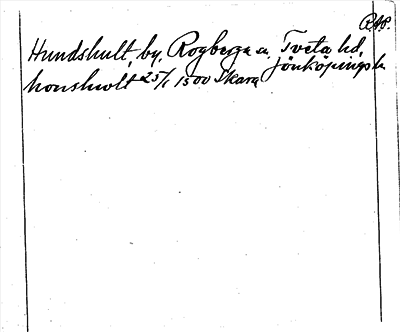 RAP.
Hundshult, by, Rogberga a, Tveta hd,
Jönköpings l.
honshwolt 25/1 1500 Skara